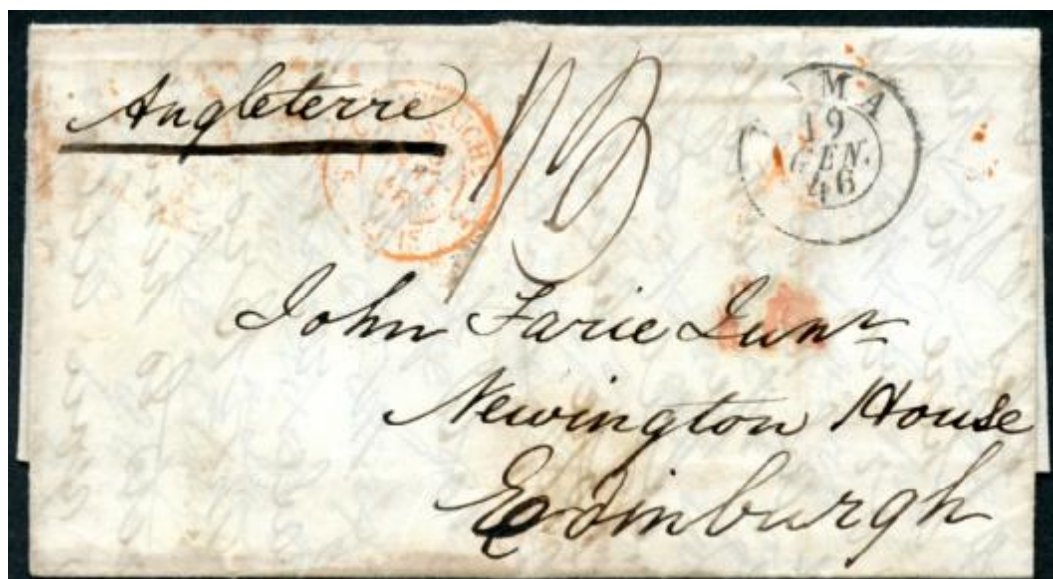 Angleterre
M A
19
GEN.
46
John Farie Junr
Newington House
Edinburgh